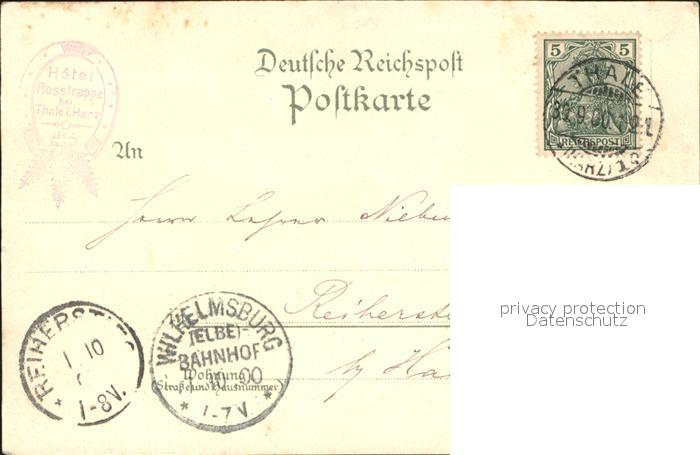 Hôtel
Rosstrappe
bei
Thale i. Harz
Deutsche Reichspost
Postkarte
5 5
REICHSPOST
THALE
30.9.00
(HARZ)
An
Herrn Lehrer
privacy protection
Datenschutz
REIHERST
1 10
1-8V.
WILHELMSBURG
(ELBE)-
BAHNHOF
10 00
* 1-7V. *
Wohnung
(Straße und Hausnummer)
Reiherst
by Ha